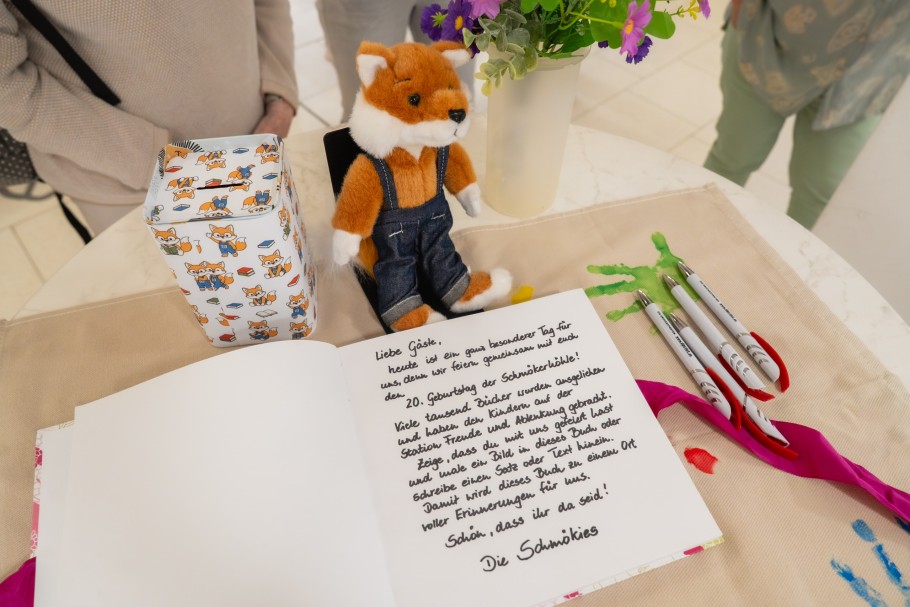 Liebe Gäste,
heute ist ein ganz besonderer Tag für
uns, denn wir feiern gemeinsam mit euch
den
20. Geburtstag der Schmökerhöhle!
Viele tausend Bücher wurden ausgeliehen
und haben den Kindern auf der
Station Freude und Ablenkung gebracht.
Zeige, dass du mit uns gefeiert hast
und male ein Bild in dieses Buch oder
schreibe einen Satz oder Text hinein.
Damit wird dieses Buch zu einem Ort
voller Erinnerungen für uns.
Schön, dass ihr da seid!
Die Schmökies